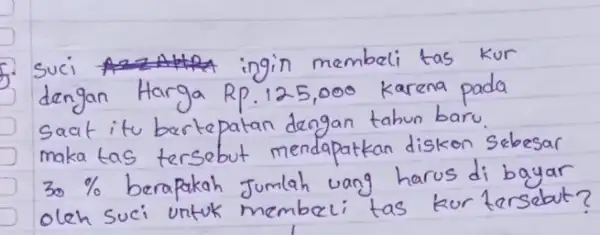 5. Suci AZZAHRA ingin membeli tas kur
dengan Harga Rp. 125,000 karena pada
saat itu bertepatan dengan tahun baru.
maka tas tersebut mendapatkan diskon sebesar
30 % berapakah Jumlah uang harus di bayar
oleh suci untuk membeli tas kur tersebut?